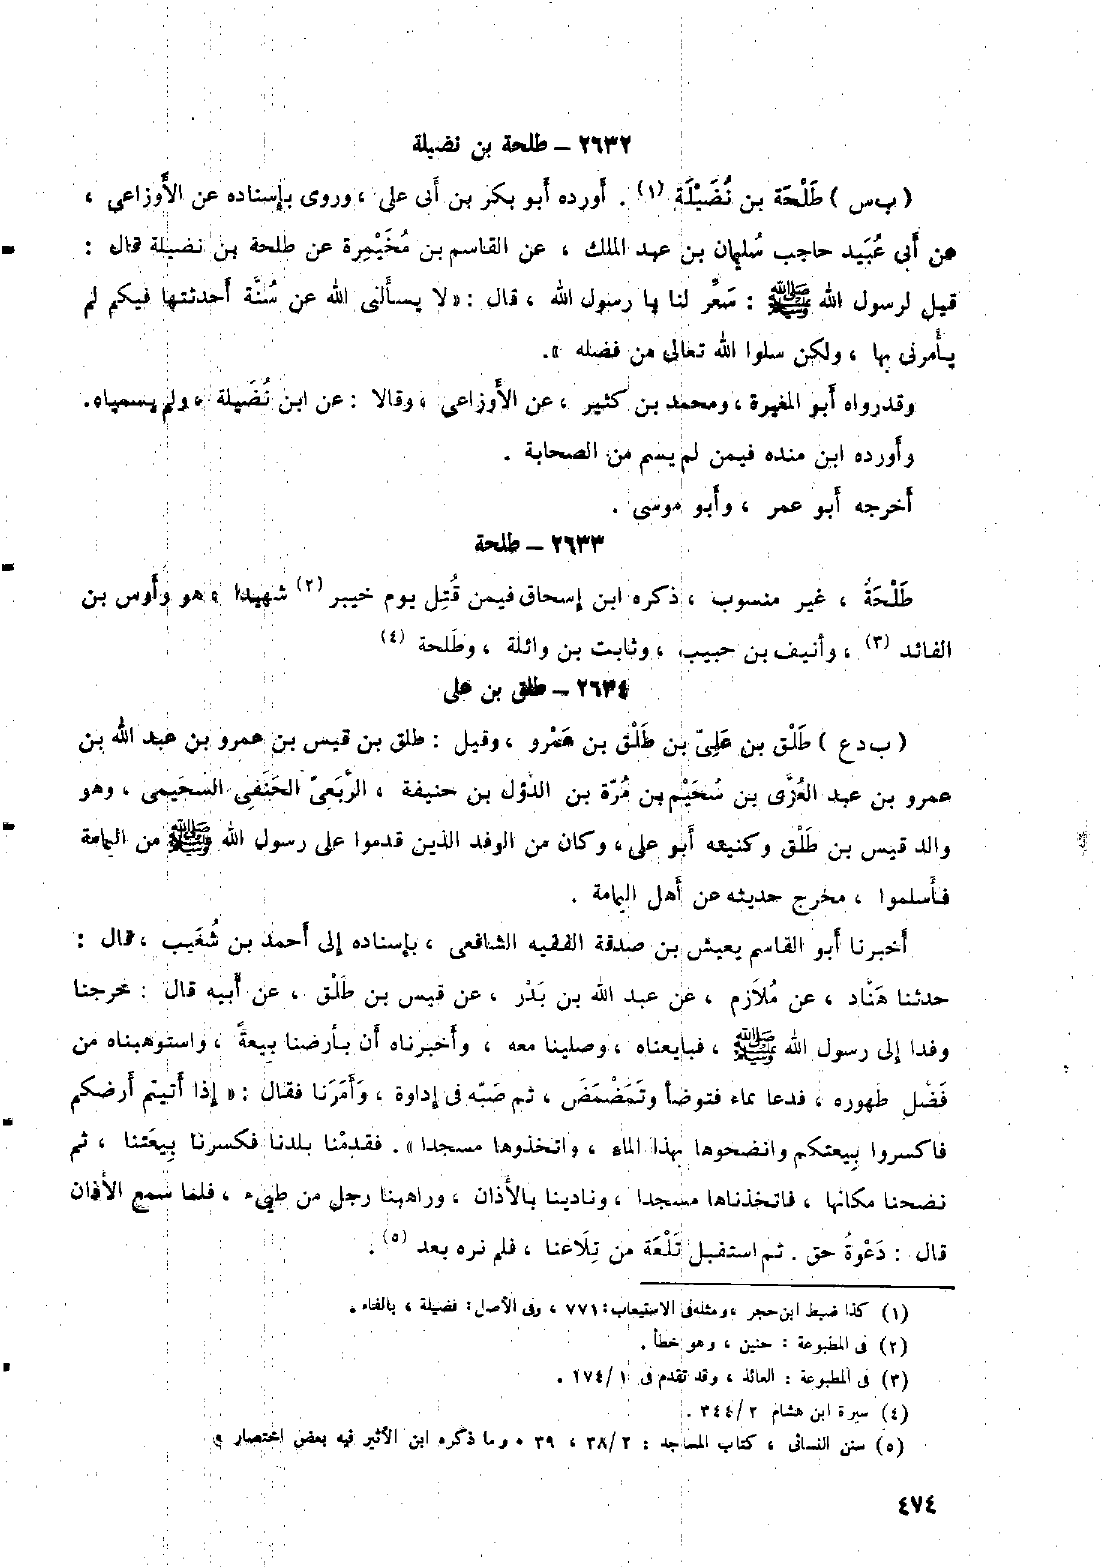 ٢٦٣٢ – طلحة بن نضيلة
( ب س ) طَلْحَة بن نُضَيْلَة (١) . أورده أبو بكر بن أبى على ، وروى بإسناده عن الأوزاعى ،
عن أَبى عُبَيد حاجب سُليمان بن عبد الملك ، عن القاسم بن مُخَيْمِرة عن طلحة بن نضيلة قال :
قيل لرسول الله ﷺ : سَعِّر لنا يا رسول الله ، قال : « لا يسأَلنى الله عن سُنَّة أحدثتها فيكم لم
يأْمرنى بها ، ولكن سلوا الله تعالى من فضله ».
وقد رواه أبو المغيرة ، ومحمد بن كثير ، عن الأَوزاعى ، وقالا : عن ابن نُضَيلة ، ولم يسمياه.
وأورده ابن منده فيمن لم يسم من الصحابة .
أَخرجه أَبو عمر ، وأَبو موسى .
٢٦٣٣ – طلحة
طَلْحَةُ ، غير منسوب ، ذكره ابن إسحاق فيمن قُتِل يوم خيبر (٢) شهيدا ، هو وأَوس بن
الفائد (٣) ، وأنيف بن حبيب ، وثابت بن واثلة ، وطَلحة (٤)
٢٦٣٤ – طلق بن على
( ب د ع ) طَلْق بن عَلِىّ بن طَلْق بن عَمْرو ، وقيل : طلق بن قيس بن عمرو بن عبد الله بن
عمرو بن عبد العُزَّى بن سُحَيْم بن مُرّة بن الدُّؤل بن حنيفة ، الرَّبَعىّ الحَنَفى السحَيمى ، وهو
والد قيس بن طَلْق وكنيته أَبو على ، وكان من الوفد الذين قدموا على رسول الله ﷺ من اليمامة
فأَسلموا ، مخرج حديثه عن أَهل اليمامة .
أَخبرنا أَبو القاسم يعيش بن صدقة الفقيه الشافعى ، بإسناده إلى أَحمد بن شُعَيب ، قال :
حدثنا هَنَّاد ، عن مُلاَزم ، عن عبد الله بن بَدْر ، عن قيس بن طَلْق ، عن أَبيه قال : خرجنا
وفدا إلى رسول الله ﷺ ، فبايعناه ، وصلينا معه ، وأَخبرناه أَن بأَرضنا بِيعةً ، واستوهبناه من
فَضْل طهوره ، فدعا بماء فتوضأ وتَمَضْمَضَ ، ثم صَبّه فى إداوة ، وَأَمَرَنا فقال : « إذا أَتيتم أَرضكم
فاكسروا بِيعتكم وانضحوها بهذا الماء ، واتخذوها مسجدا ». فقدِمْنا بلدنا فكسرنا بِيعَتنا ، ثم
نضحنا مكانها ، فاتخذناها مسجدا ، ونادينا بالأَذان ، وراهبنا رجل من طيىء ، فلما سمع الأذان
قال : دَعْوةُ حق . ثم استقبل تَلْعَة من تِلَاعنا ، فلم نره بعد (٥) .
(١) كذا ضبط ابن حجر ، ومثله فى الاستيعاب : ٧٧١ ، وفى الأصل : فضيلة ، بالفاء .
(٢) فى المطبوعة : حنين ، وهو خطأ .
(٣) فى المطبوعة : العائذ ، وقد تقدم فى ١/ ٢٧٤ .
(٤) سيرة ابن هشام ٢/ ٣٤٤ .
(٥) سنن النسائى ، كتاب المساجد : ٢/ ٣٨ ، ٣٩ ، وما ذكره ابن الأثير فيه بعض اختصار .
٤٧٤